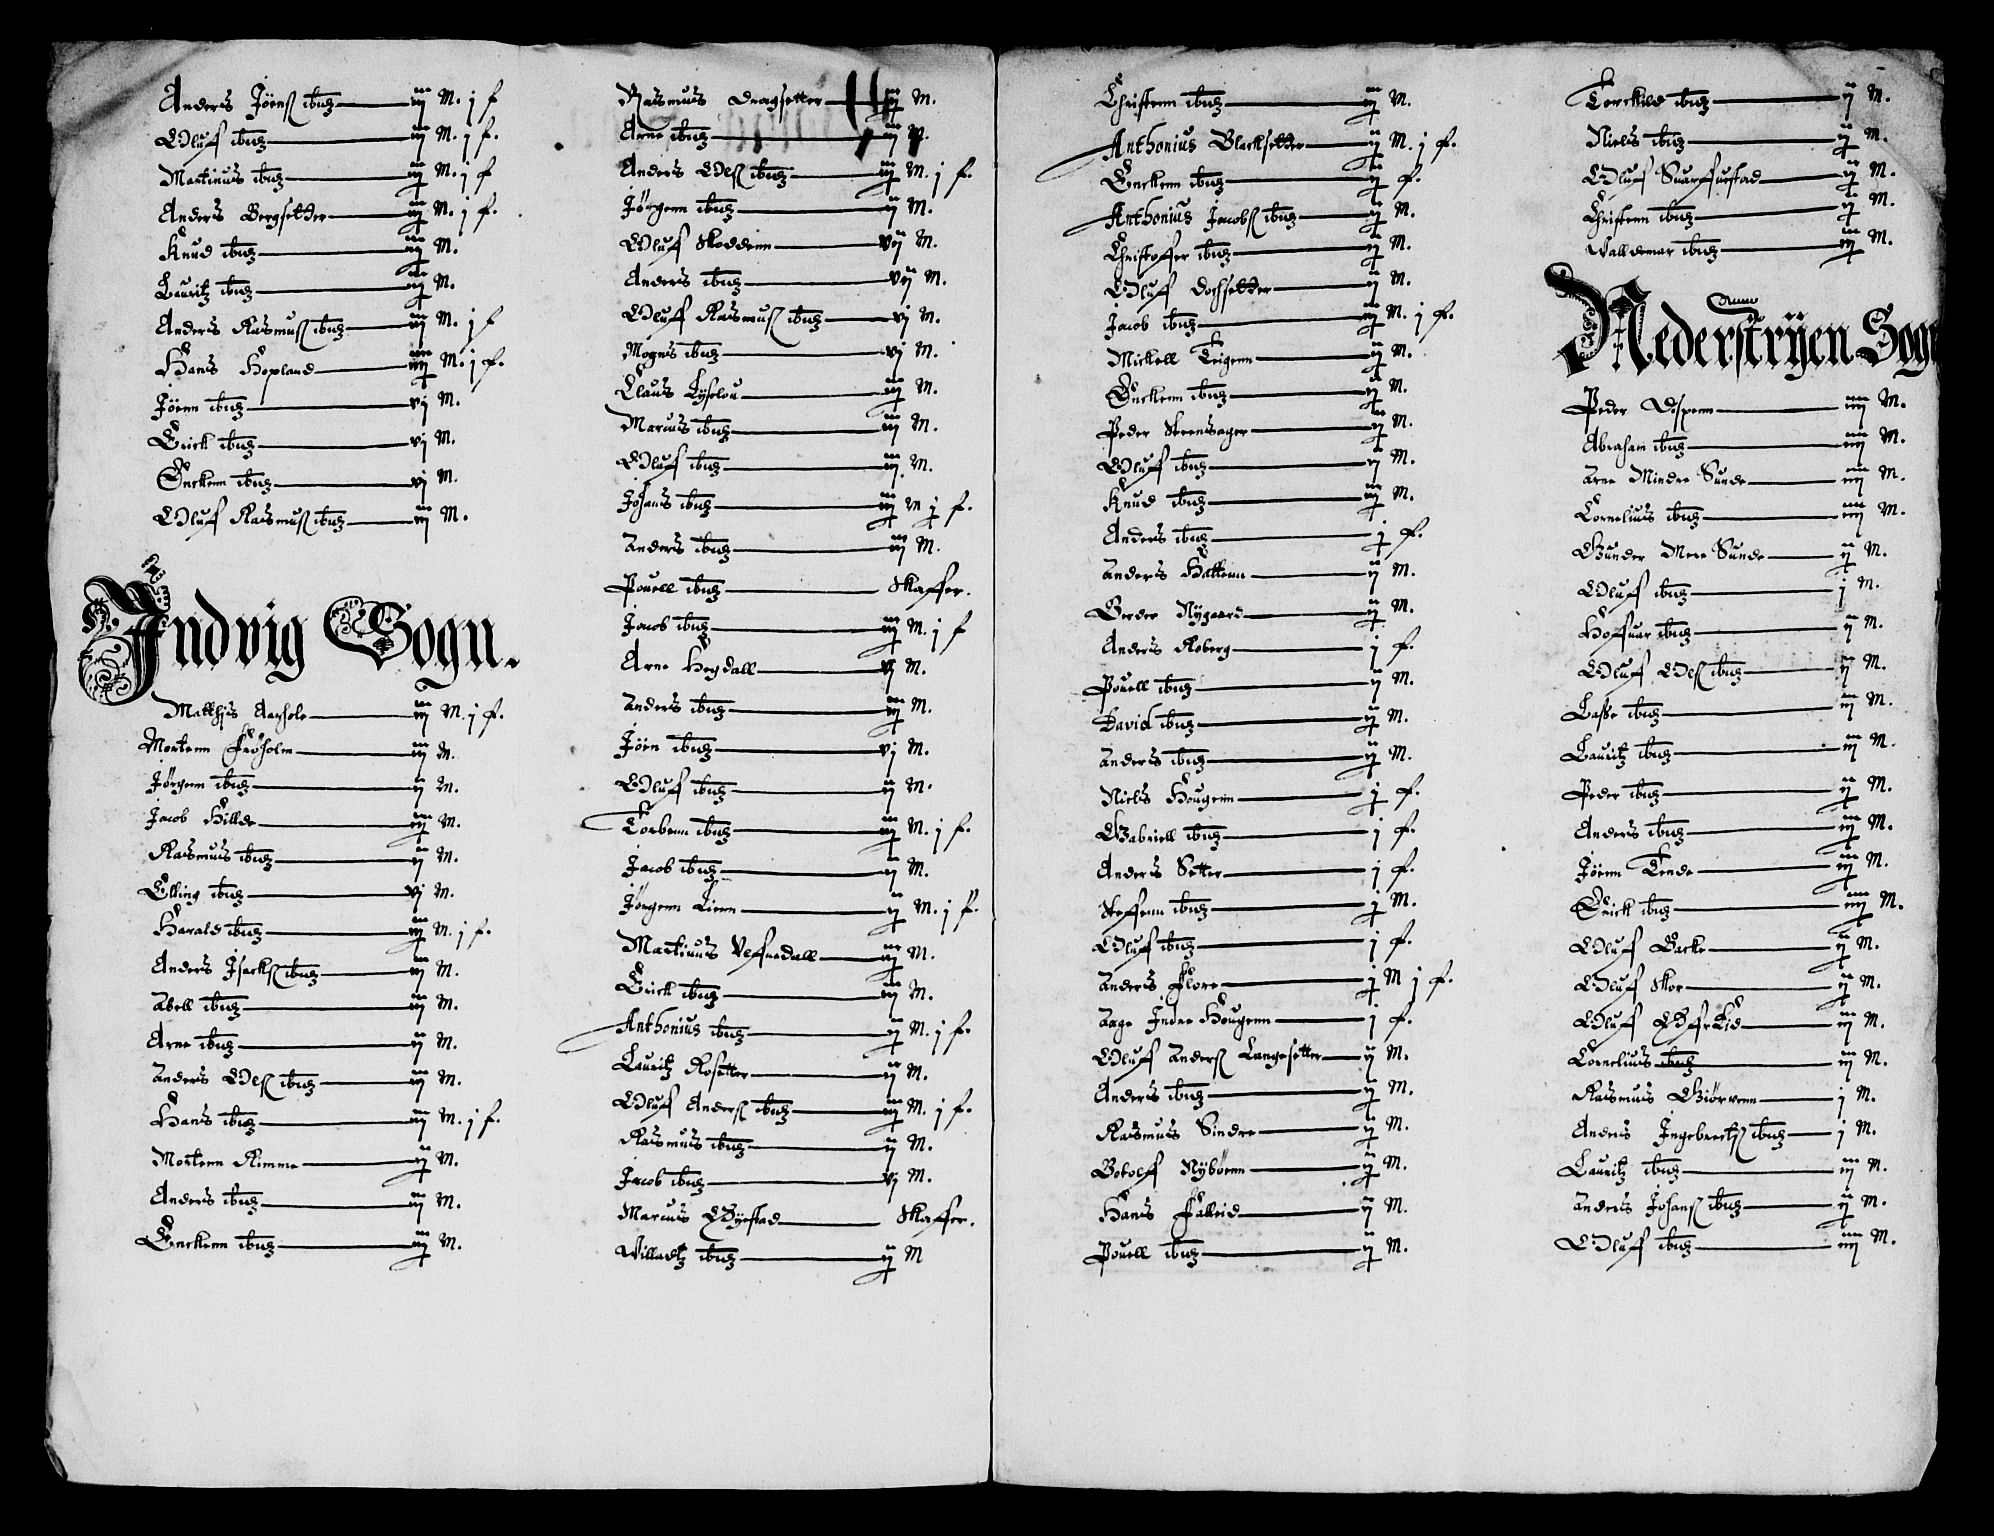 Anders Jöenß ibidz iij M. j f
Oluff ibidz iij M. j f.
Martinus ibidz iiij M. j f
Anders Bergsetter iiij M. j f.
Knud ibidz iiij M.
Lauritz ibidz iiij M.
Anders Rasmuß ibidz iij M. j f
Hans Hopland iiij M. j f.
Jöenn ibidz vj M.
Erick ibidz vj M.
Enckenn ibidz vj M.
Oluff Rasmuß ibidz iij M.
Indvig Sogn.
Matthjs Aarholе iij M. j f.
Mortenn Frøholm iij M.
Jörgenn ibidz ij M.
Jacob Hillde iij M.
Rasmus ibidz ij M.
Elling ibidz vj M.
Harald ibidz iij M. j f.
Anders Isackß ibidz iij M.
Abell ibidz iij M.
Arne ibidz ij M.
Anders Olß ibidz iij M.
Hans ibidz iij M. j f.
Mortenn Rimme ij M.
Anders ibidz iij M.
Enckenn ibidz iij M.
Rasmus Dragsetter M.
Arne ibidz M.
Anders Olß ibidz iij M. j f.
Jörgenn ibidz ij M.
Oluff Skoddenn vij M.
Anders ibidz vij M.
Oluff Rasmuß ibidz vj M.
Mogns ibidz vj M.
Claus Lyslou iij M.
Marcus ibidz iij M.
Oluff ibidz iij M.
Johans ibidz iij M j f.
Anders ibidz iij M.
Pouell ibidz Skaffer.
Jacob ibidz iij M. j f
Arne Hegdall vj M.
Anders ibidz iiij M.
Jöen ibidz vj M.
Oluff ibidz ij M.
Torbenn ibidz iij M. j f.
Jacob ibidz ij M.
Jörgenn Lienn ij M. j f.
Martinus Vlfuedall iij M.
Erick ibidz iij M.
Anthonius ibidz ij M. j f.
Lauritz Rosetter ij M.
Oluff Anderß ibidz iij M. j f.
Rasmus ibidz ij M.
Jacob ibidz vj M.
Marcus Gystad Skaffer.
Willadtz ibidz ij M
Christenn ibidz iij M.
Anthonius Blacksetter ij M. j f.
Enckenn ibidz ij f.
Anthonius Jacobß ibidz ij M.
Christoffer ibidz ij M.
Oluff Dochsetter ij M.
Jacob ibidz iij M. j f.
Mickell Teigenn ij M.
Enckenn ibidz ij M.
Peder Steensager ij M.
Oluff ibidz ij M.
Knud ibidz iij M.
Anders ibidz j f.
Anders Hattenn ij M.
Peder Nygaard ij M.
Anders Roberg j f.
Pouell ibidz ij M.
David ibidz ij M.
Anders ibidz ij M.
Niels Hougenn j f.
Gabriell ibidz j f.
Anders Setter j f.
Steffenn ibidz j M.
Oluff ibidz j f.
Anders Flore j M j f.
Aage Indre Hougenn j f.
Oluff Anderß Langesetter ij M.
Anders ibidz ij M.
Rasmus Sindre ij M.
Botolff Nybøenn ij M.
Hans Falleid ij M.
Pouell ibidz ij M.
Torckild ibidz ij M.
Niels ibidz ij M.
Oluff Suarffuestad ij M.
Christenn ibidz ij M.
Valldemar ibidz iij M.
Nederstrÿen Sogn
Peder Ospenn iiij M.
Abraham ibidz iiij M.
Arne Mindre Sunde iiij M.
Cornelius ibidz iiij M.
Gunder Mere Sunde ij M.
Oluff ibidz j M.
Hoffuar ibidz ij M.
Oluff Olß ibidz ij M.
Lasße ibidz iij M.
Lauritz ibidz iij M.
Peder ibidz ij M.
Anders ibidz iij M.
Jöenn Tende iij M.
Erick ibidz iiij M.
Oluff Backe ij M.
Oluff Skor ij M.
Oluff Øffr Eid iij M.
Cornelius ibidz iij M.
Rasmus Giörvenn j M.
Anders Ingebrectß ibidz j M.
Lauritz ibidz iij M.
Anders Johanß ibidz ij M.
Oluff ibidz iiij M.